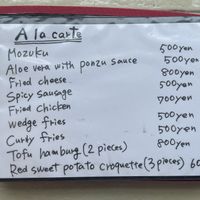 A la carte
Mozuku 500yen
Aloe vera with ponzu sauce 500yen
Fried cheese 800yen
Spicy sausage 500yen
Fried Chicken 700yen
wedge fries 500yen
Curly fries 500yen
Tofu hamburg (2 pieces) 800yen
Red sweet potato croquette (3 pieces) 60